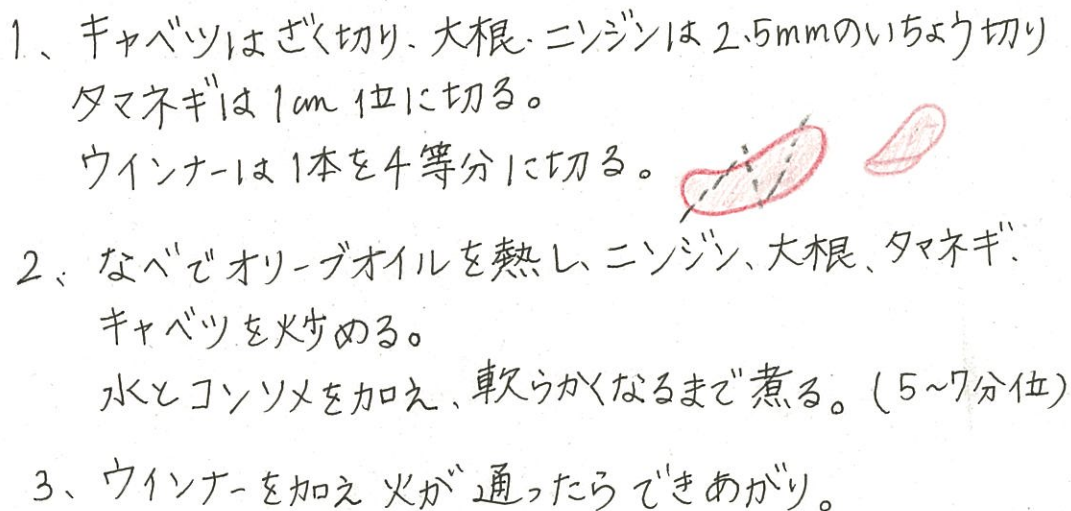 1、キャベツはざく切り、大根、ニンジンは2.5mmのいちょう切り
タマネギは1cm位に切る。
ウインナーは1本を4等分に切る。
2、なべでオリーブオイルを熱し、ニンジン、大根、タマネギ、
キャベツを炒める。
水とコンソメを加え、軟らかくなるまで煮る。(5~7分位)
3、ウインナーを加え火が通ったらできあがり。